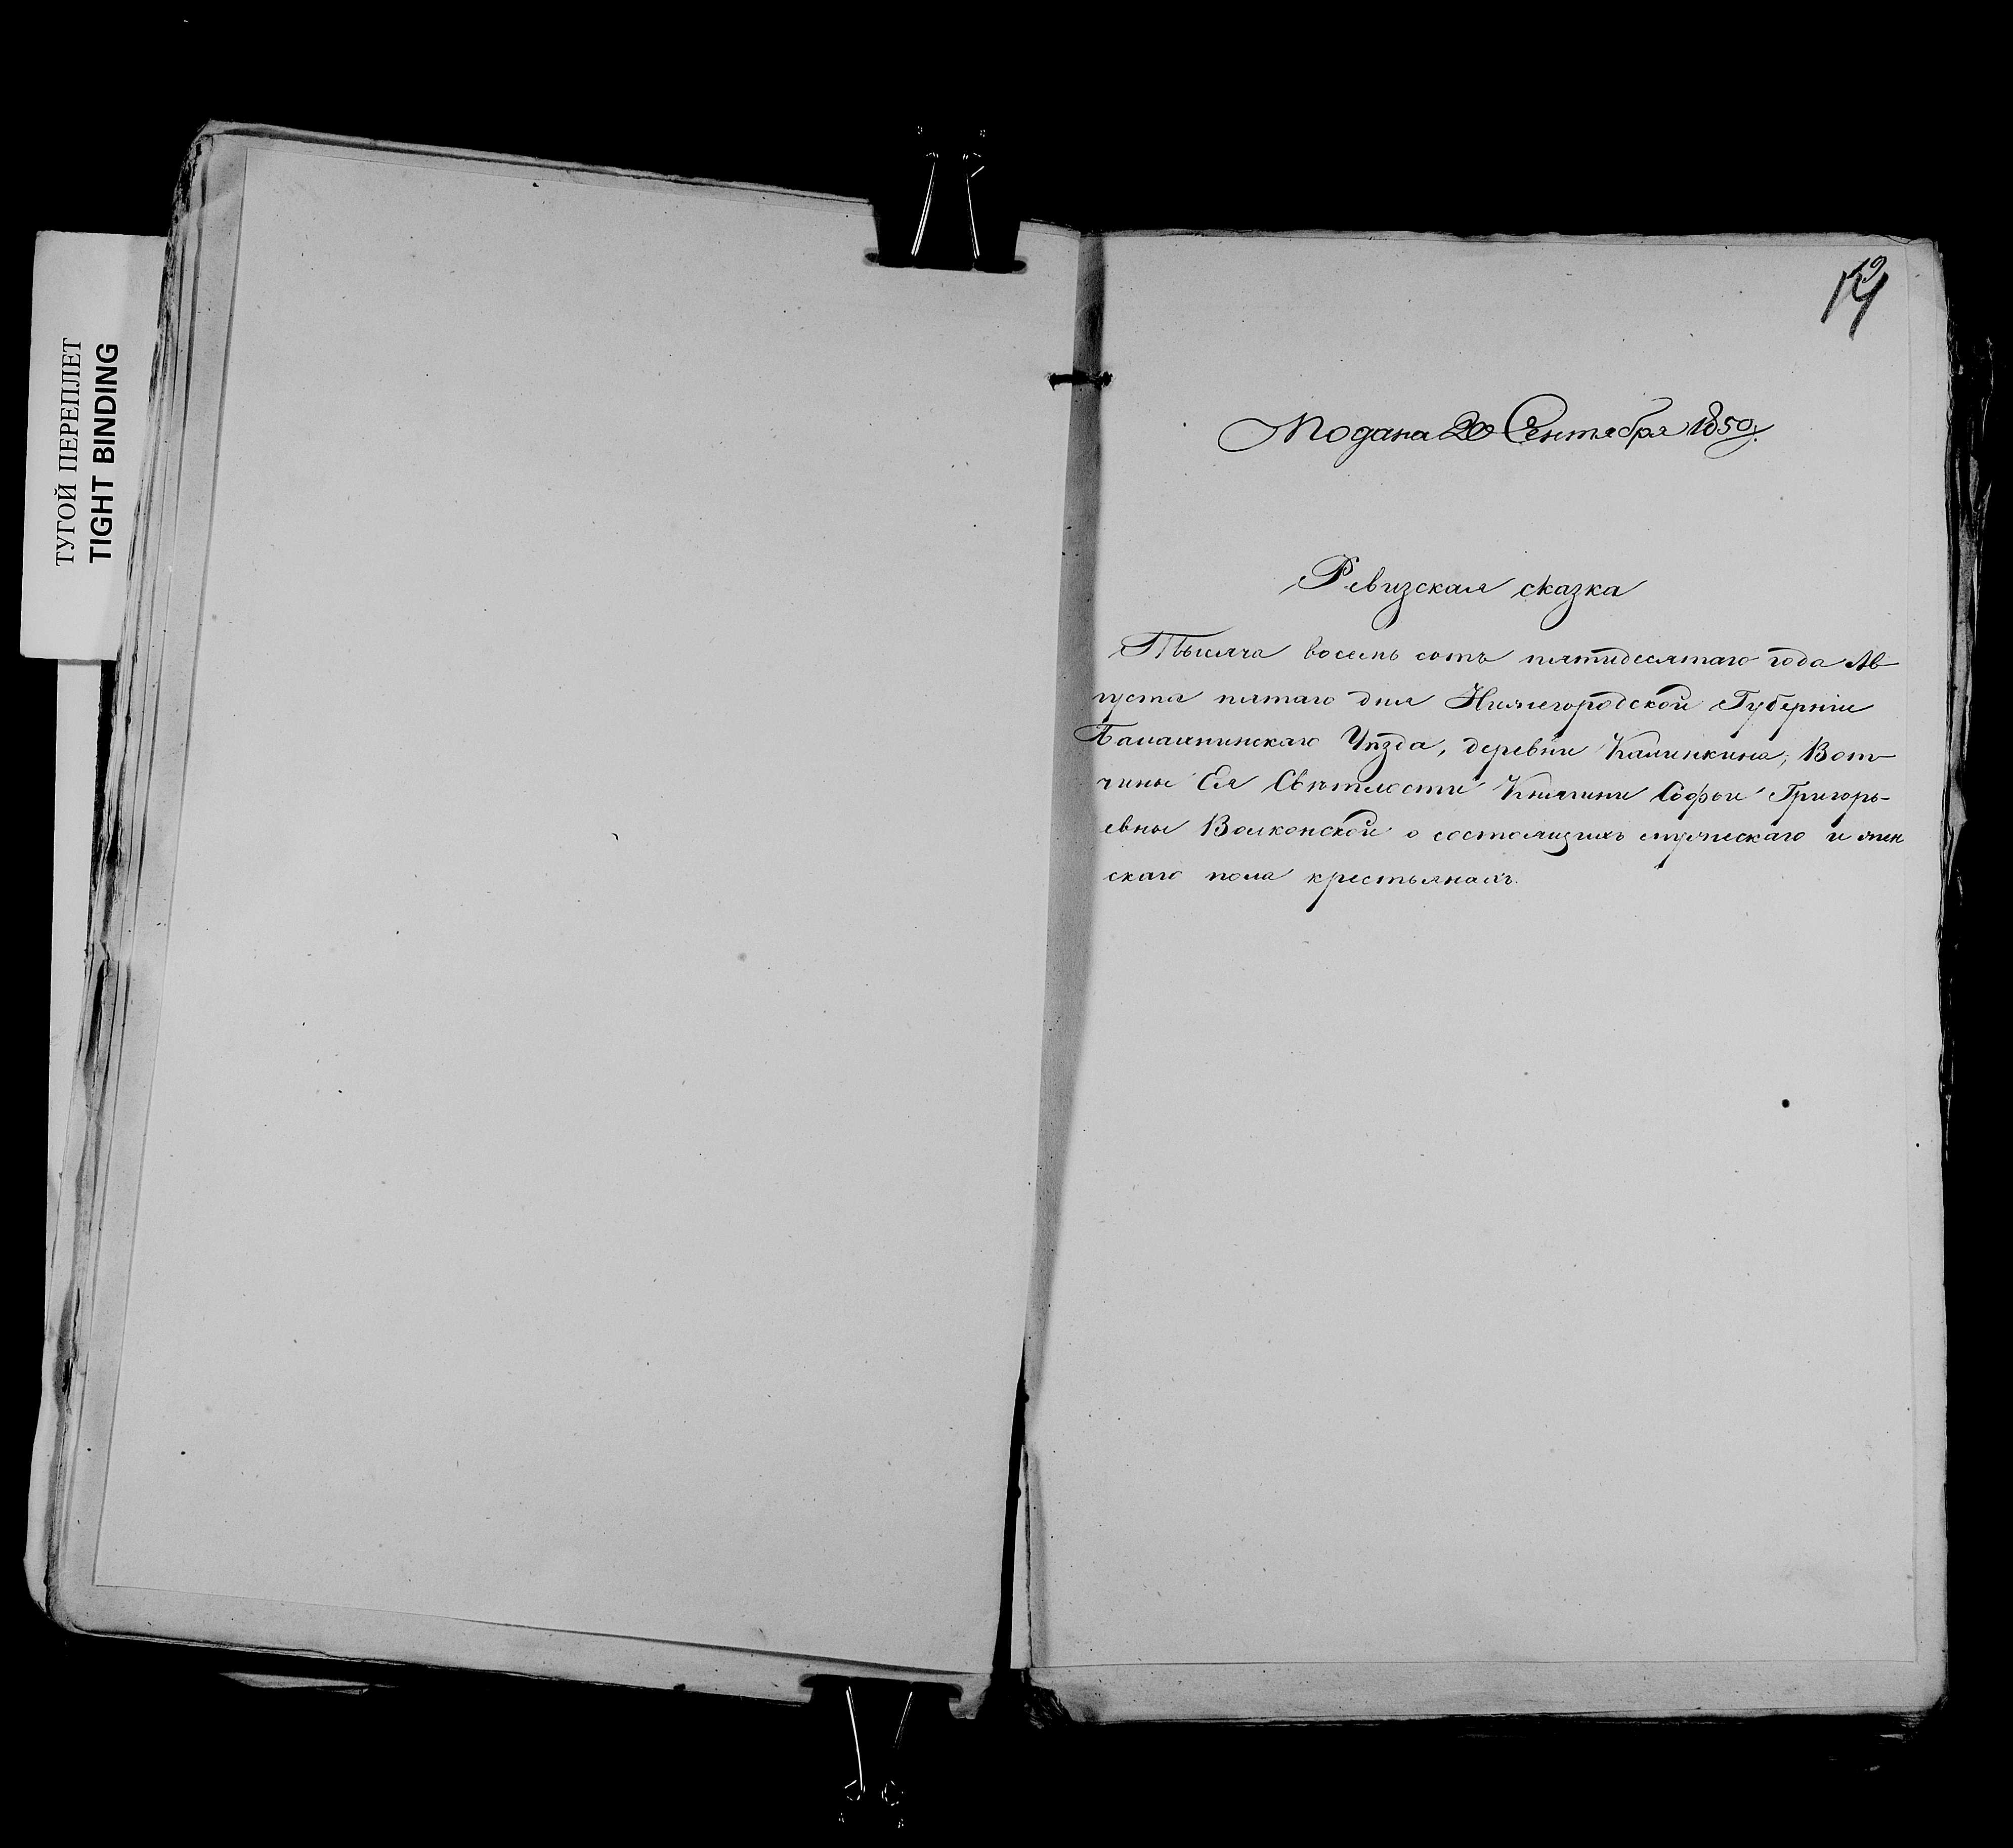 ТУГОЙ ПЕРЕПЛЕТ
TIGHT BINDING
Подана 20 Сентября 1850 г.
Ревизская сказка
Тысяча восемь сотъ пятидесятаго года Ав-
густа пятаго дня Нижегородской Губерніи
Балахнинскаго Уѣзда, деревни Калинкина, Вот-
чины Ея Свѣтлости Княгини Софьи Григорь-
евны Волконской о состоящихъ мужескаго и жен
скаго пола крестьянахъ.